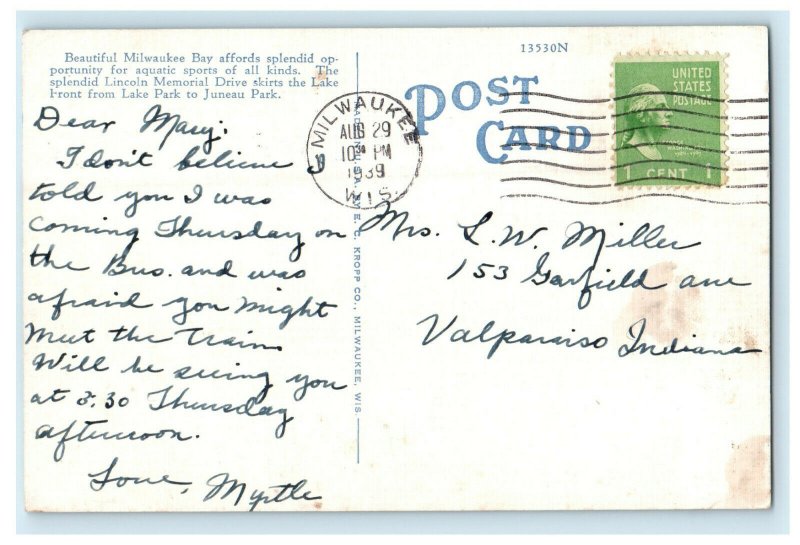 13530N
Beautiful Milwaukee Bay affords splendid op-
portunity for aquatic sports of all kinds. The
splendid Lincoln Memorial Drive skirts the Lake
Front from Lake Park to Juneau Park.
POST
CARD
MILWAUKEE
AUG 29
10 PM
1939
WIS.
UNITED
STATES
POSTAGE
1 CENT 1
Dear Mary;
I don't believe I
told you I was
coming Thursday on
the Bus. and was
afraid you might
meet the train.
Will be seeing you
at 3:30 Thursday
afternoon.
Love, Myrtle
E. C. KROPP CO., MILWAUKEE, WIS.
Mrs. L. W. Miller
153 Garfield ave
Valparaiso Indiana